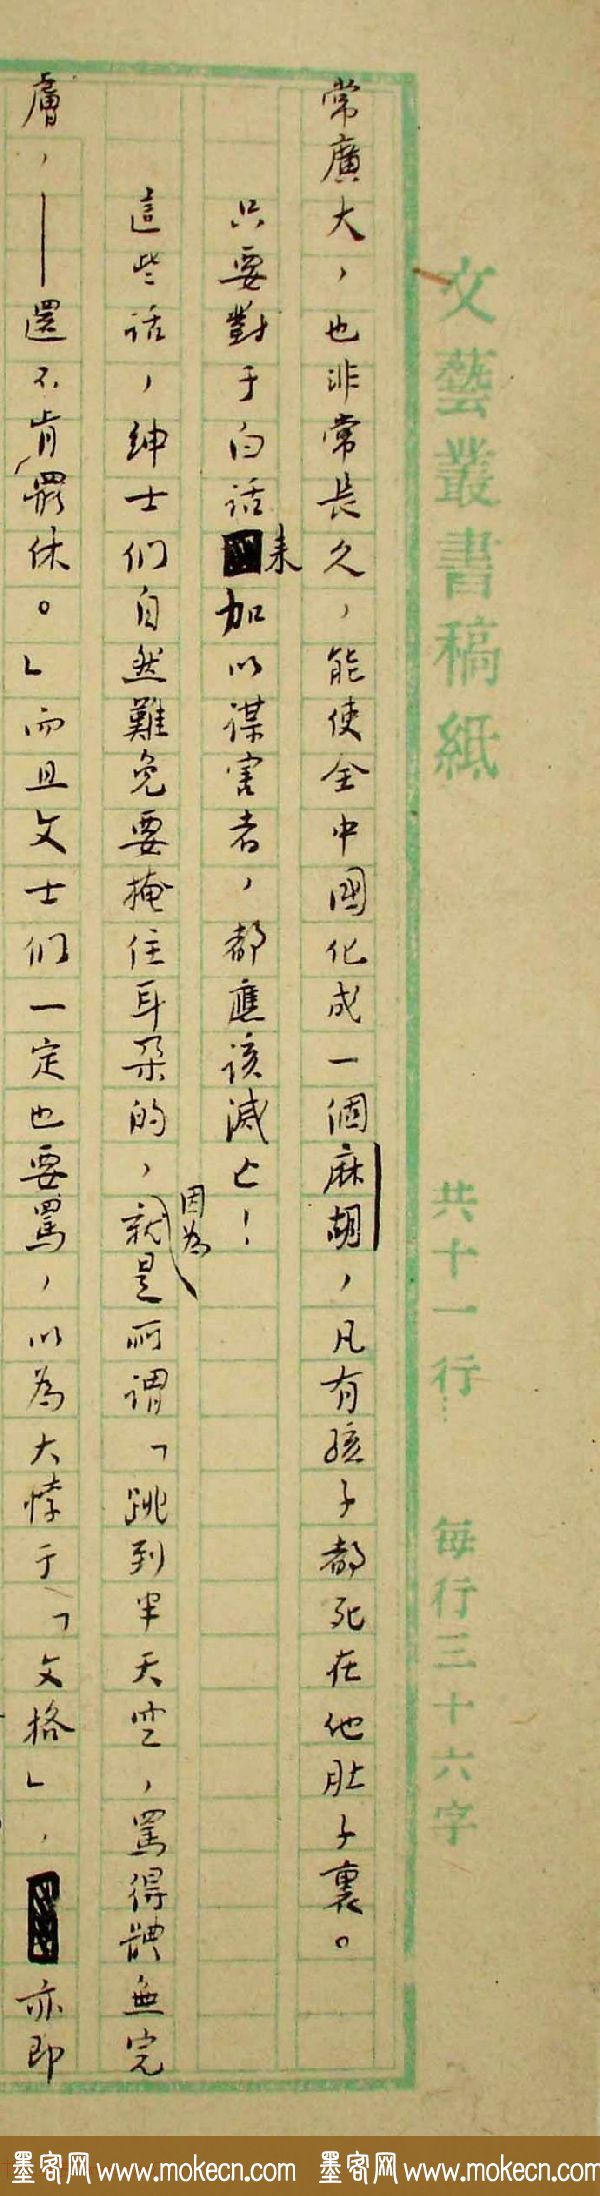 文藝叢書稿紙
共十一行
每行三十六字
常廣大，也非常長久，能使全中國化成一個麻胡，凡有孩子都死在他肚子裏。
只要對于白話來加以謀害者，都應該滅亡！
這些話，紳士們自然難免要掩住耳朵的，因為就是所謂「跳到半天空，罵得體無完
膚，——還不肯罷休。」而且文士們一定也要罵，以為大悖于「文格」，亦即
墨客网 www.mokecn.com 墨客网 www.mokecn.com